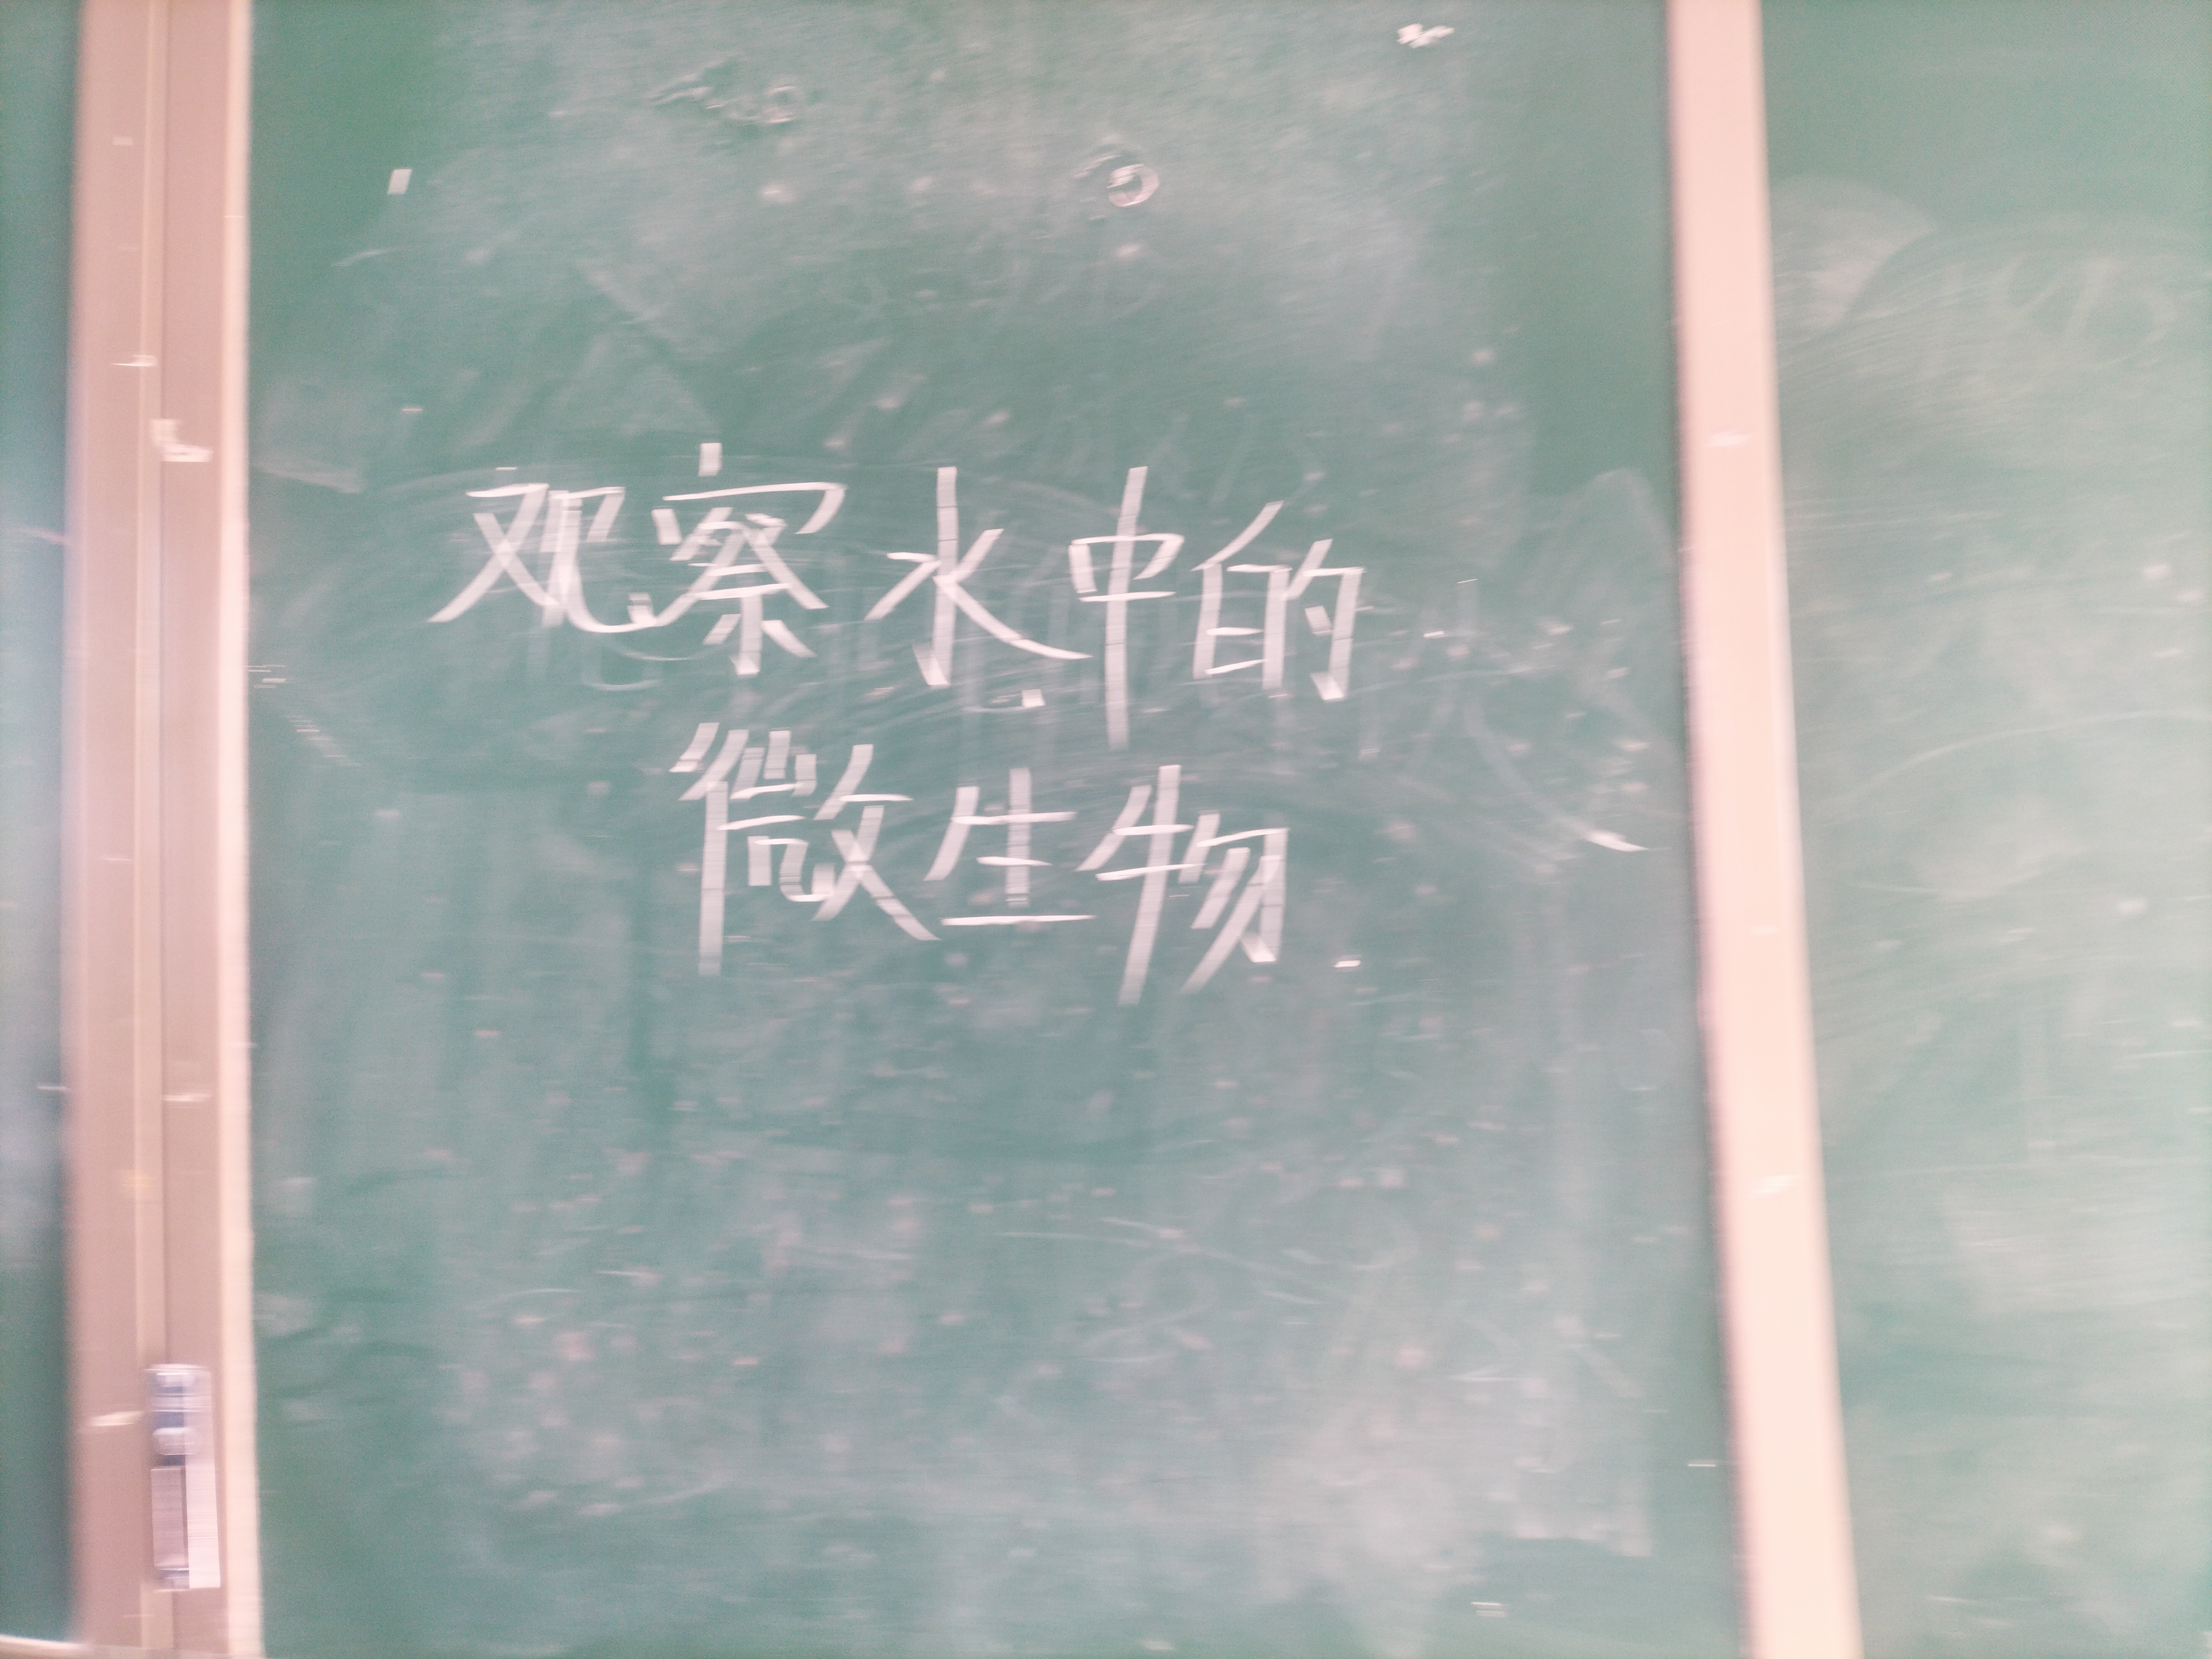 观察水中的
微生物